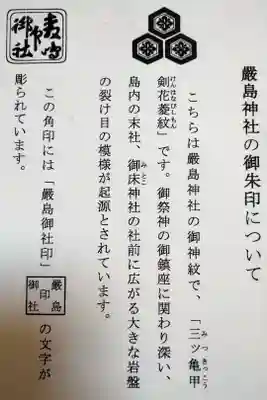 厳島神社の御朱印について
こちらは厳島神社の御神紋で、「三ッ亀甲
みつきっこう
剣花菱紋」です。御祭神の御鎮座に関わり深い、
けんはなびしもん
島内の末社、御床神社の社前に広がる大きな岩盤
みとこ
の裂け目の模様が起源とされています。
この角印には「厳島御社印」
厳島
印
御社
の文字が
彫られています。